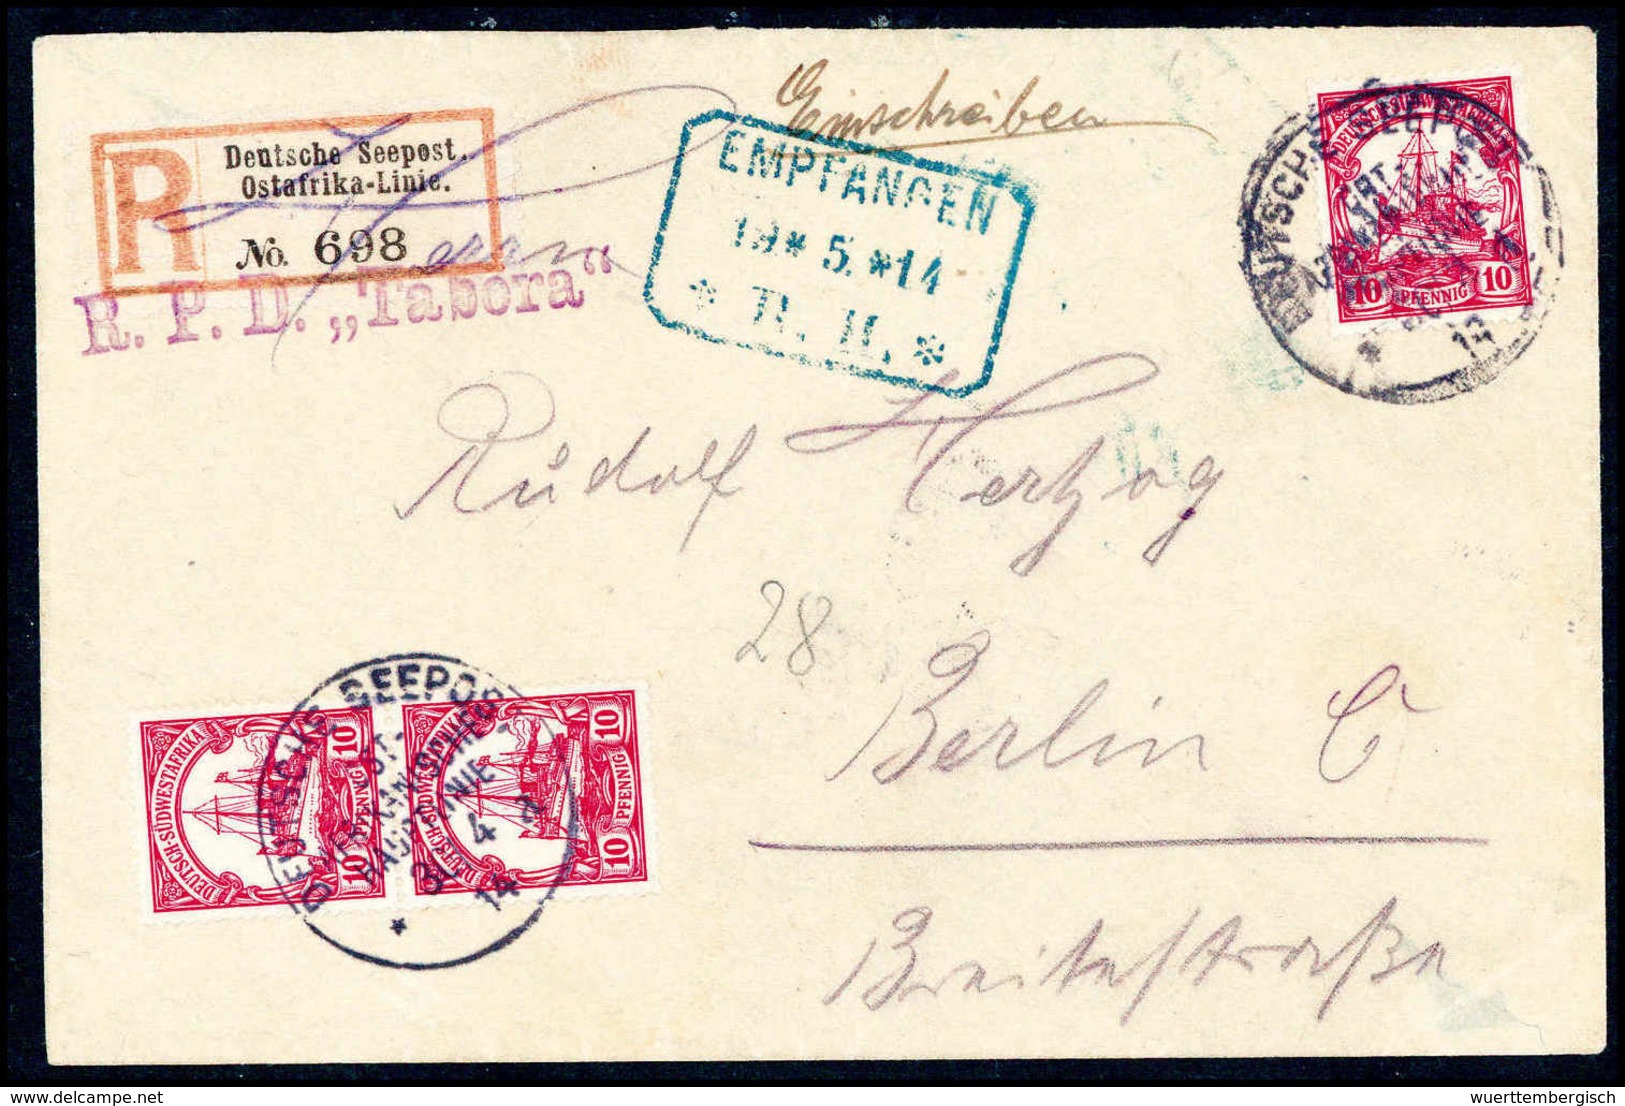 Einschreiben
R
Deutsche Seepost.
Ostafrika-Linie.
No. 698
R. P. D. „Tabora“
EMPFANGEN
19* 5. *14
* R. H. *
DEUTSCHE SEEPOST
* 13
DEUTSCH-SÜDWESTAFRIKA
10 PFENNIG 10
Rudolf Hertzog
28
Berlin C
Breitestraße
DEUTSCHE SEEPOST
OST-
AFRIKANISCHE
HAUPTLINIE
4
14
*
DEUTSCH-SÜDWESTAFRIKA
10 PFENNIG 10
DEUTSCH-SÜDWESTAFRIKA
10 PFENNIG 10
delcampe.net
wuerttembergisch